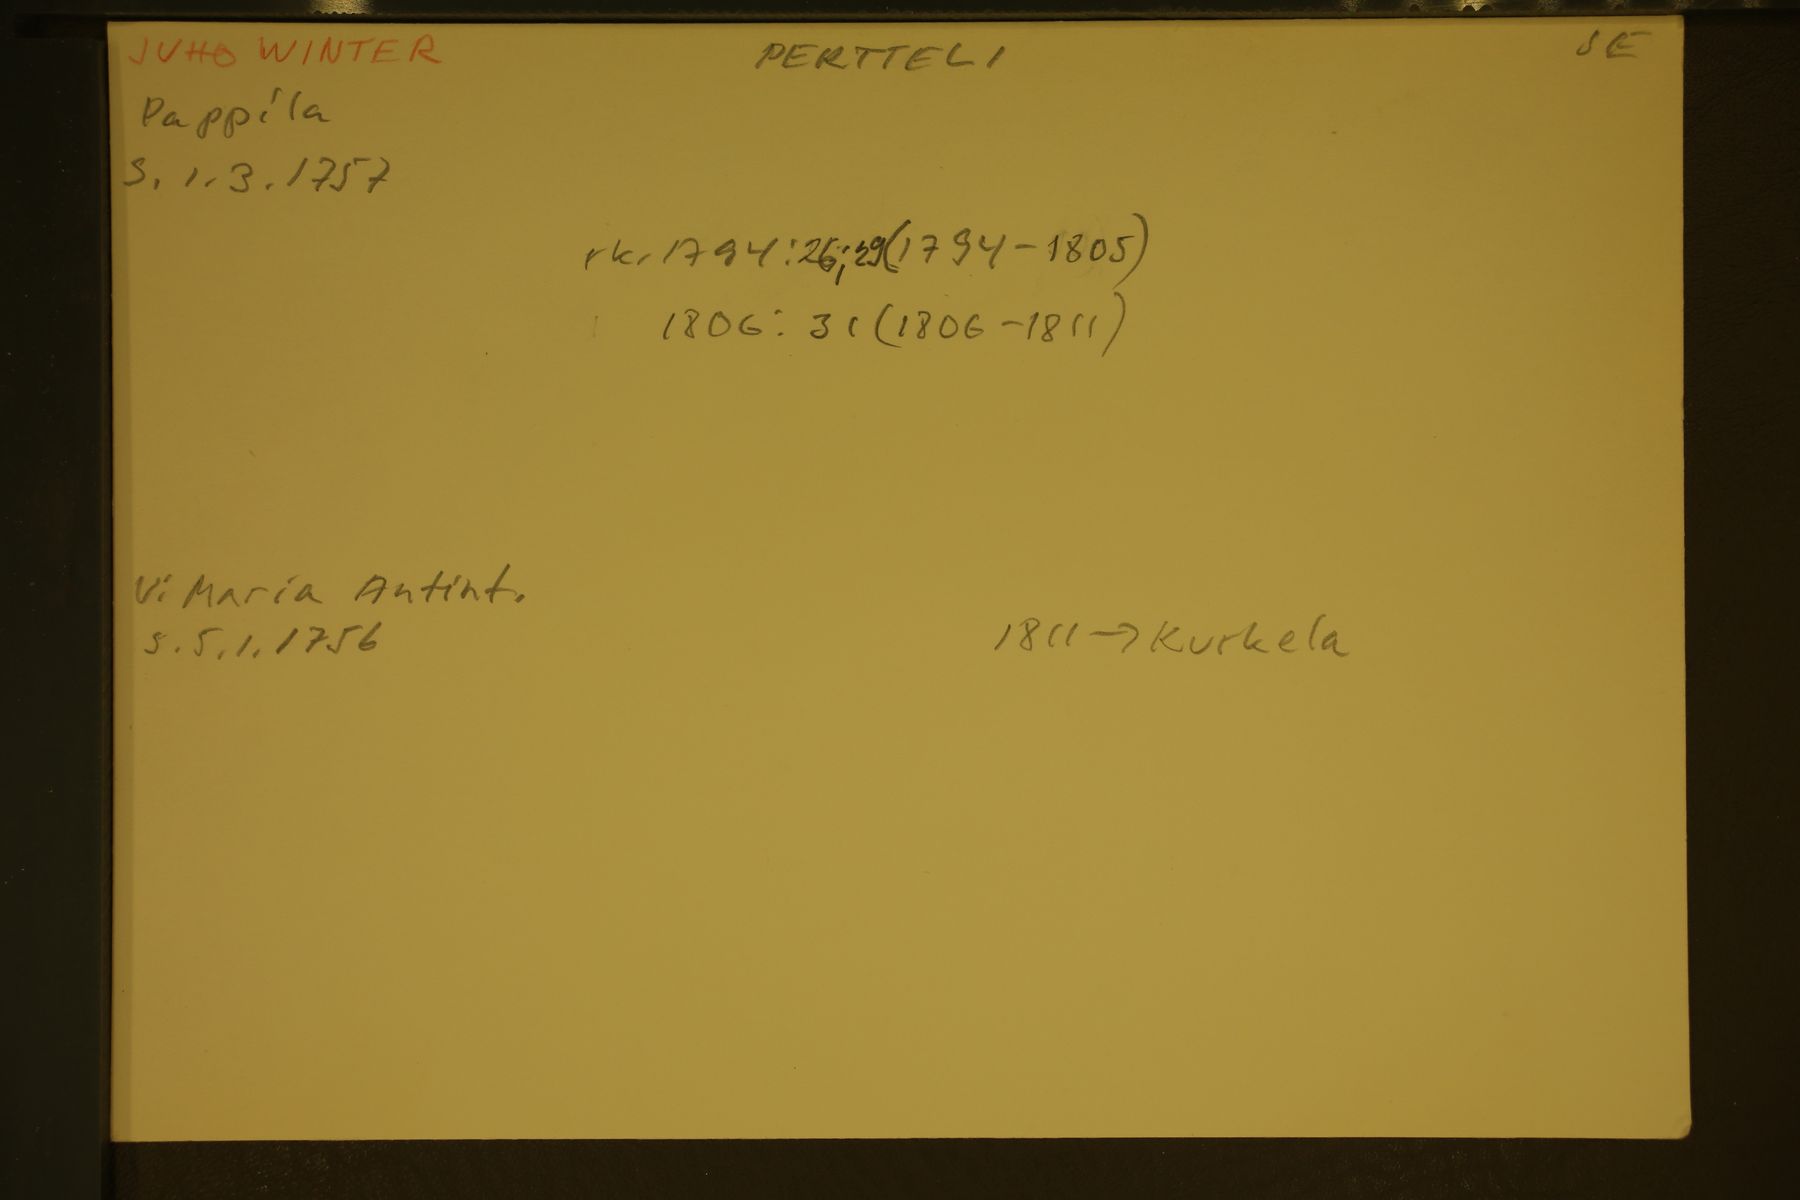 JUHO WINTER PERTTELI SE
Pappila
S. 1.3.1757
rk. 1794: 26; 29 (1794-1805)
1806: 31 (1806-1811)
V: Maria Antint.
s. 5.1.1756
1811 → Kurkela